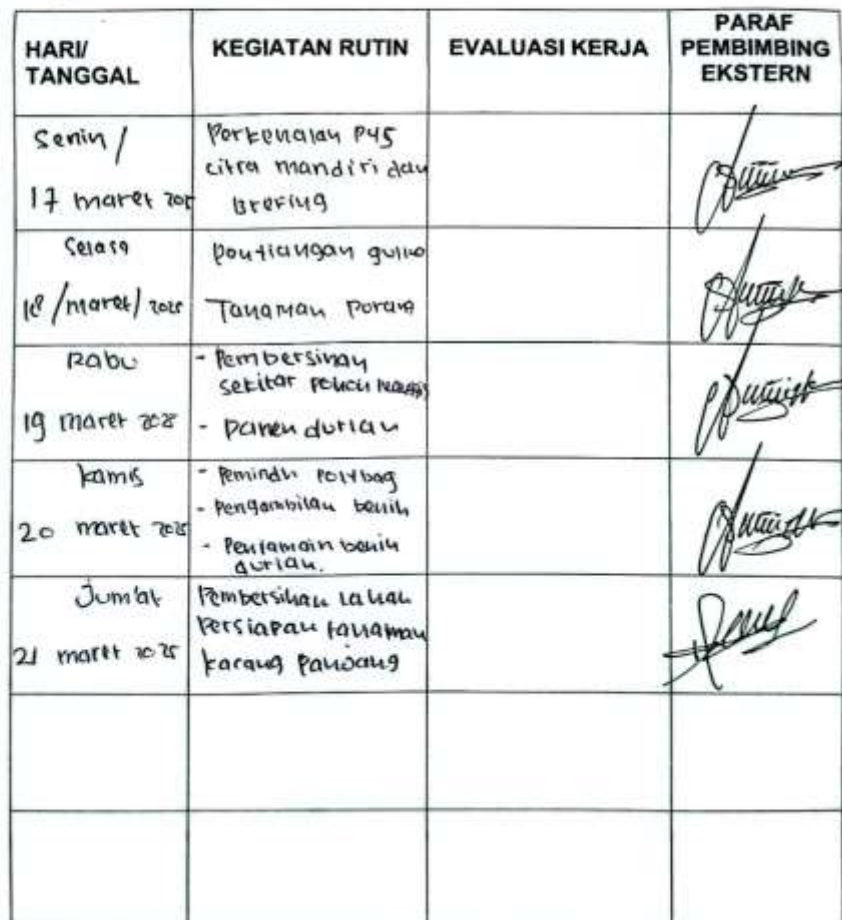 HARI/ TANGGAL
KEGIATAN RUTIN
EVALUASI KERJA
PARAF PEMBIMBING EKSTERN
Senin /
17 maret
Perkenalan P4S
citra mandiri dan
Brefing
Selasa
18 /maret/ 2025
gulma
Tanaman Porang
Rabu
19 maret 2025
- Pembersihan
sekitar pohon
- Panen durian
kamis
20 maret 2025
- Pemindh Polybag
- Pengambilan benih
- benih
durian.
Jum'at
21 maret 2025
Pembersihan lahan
Persiapan tanaman
kacang Panjang